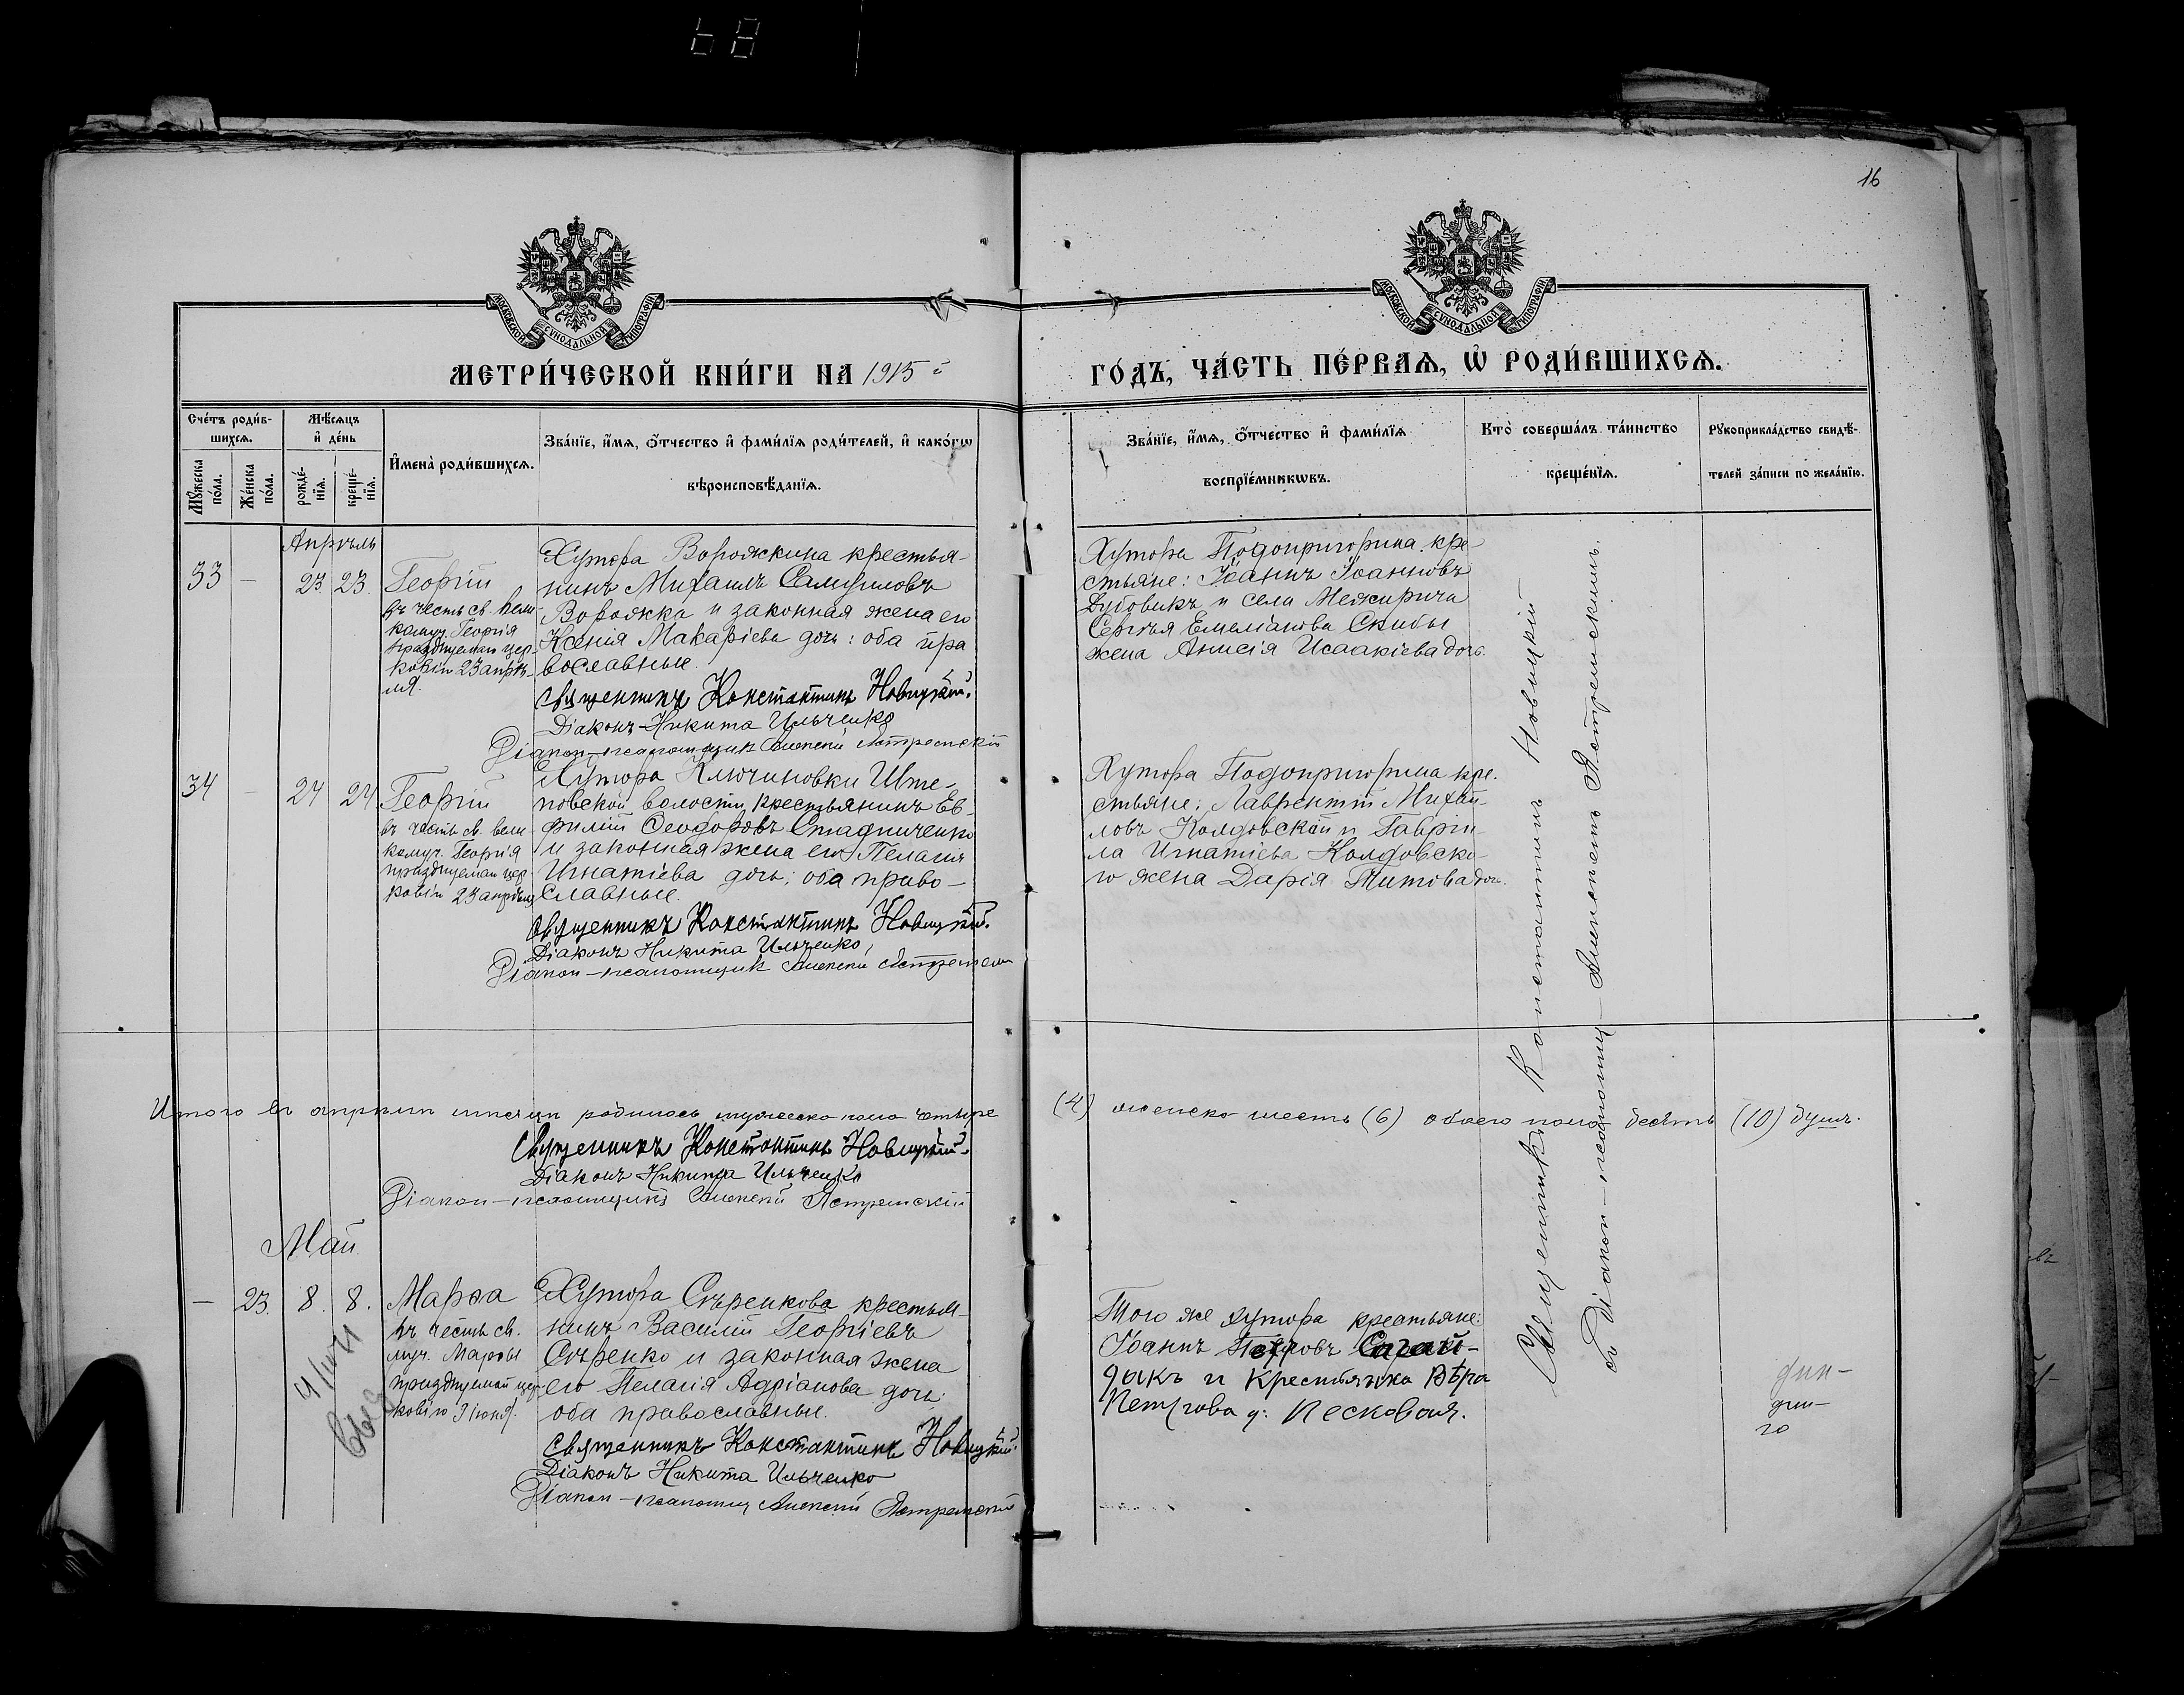 16
МОСКОВСКОЙ СѴНОДАЛЬНОЙ ТИПОГРАФІИ
МОСКОВСКОЙ СѴНОДАЛЬНОЙ ТИПОГРАФІИ
МЕТРИ́ЧЕСКОЙ КНИ́ГИ НА 1915 й
ГО́ДЪ, ЧА́СТЬ ПЕ́РВАЯ, Ѡ҆ РОДИ́ВШИХСѦ.
Сче́тъ роди́в-
шихсѧ.
Мꙋ́жеска по́ла.
Же́нска по́ла.
Мѣ́сѧцъ
и҆ де́нь
рожде́-
нїѧ.
креще́-
нїѧ.
И҆мена̀ роди́вшихсѧ.
Зва́нїе, и҆́мѧ, ѻ҆́тчество и҆ фами́лїѧ роди́телей, и҆ како́гѡ
вѣроисповѣ́данїѧ.
Зва́нїе, и҆́мѧ, ѻ҆́тчество и҆ фами́лїѧ
воспрїе́мникѡвъ.
Кто̀ соверша́лъ та́инство
креще́нїѧ.
Рꙋкоприкла́дство свидѣ́-
телей за́писи по жела́нїю.
Апрѣль
33 — 23. 23.
Георгій
въ честь св. Вели-
комуч. Георгія
празднуемаго цер-
ковію 23 апрѣ-
ля.
Хутора Ворожкина крестья-
нинъ Михаилъ Самуиловъ
Ворожка и законная жена его
Ксенія Макаріева дочь: оба пра
вославные.
Священникъ Константинъ Новицкій.
Діаконъ Никита Ильченко
Діакон-псаломщик Алексій Ястремскій
Хутора Подопригорина кре-
стьяне: Іоаннъ Іоанновъ
Дубовикъ и села Межирича
Сергѣя Емеліанова Скибы
жена Анисія Исаакіева дочь.
34 — 24 24
Георгій
въ честь св. вели-
комуч. Георгія
празднуемаго цер-
ковію 23 апрѣля
Хутора Ключиновки Ште-
повской волости, крестьянинъ Ев-
фимій Ѳеодоровъ Стадниченко
и законная жена его Пелагія
Игнатіева дочь; оба право-
славные.
Священникъ Константинъ Новицкій.
Діаконъ Никита Ильченко,
Діакон-псаломщик Алексій Ястремскій
Хутора Подопригорина кре-
стьяне: Лаврентій Михаи-
ловъ Колдовскій и Гаврiи-
ла Игнатіева Колдовско-
го жена Дарія Титова доч.
Итого въ апрѣлѣ мѣсяцѣ родилось мужеска пола четыре
(4) женска шесть (6) обоего пола десять (10) душъ.
Священникъ Константинъ Новицкій.
Діаконъ Никита Ильченко
Діакон-псаломщикъ Алексій Ястремскій
Май
— 23. 8. 8.
Марѳа
въ честь св.
муч. Марѳы
празднуемой цер-
ковію 9 іюня.
Хутора Сѣренкова крестья-
нинъ Василій Георгіевъ
Сѣренко и законная жена
его Пелагія Адріанова дочь:
оба православные.
Священникъ Константинъ Новицкій.
Діаконъ Никита Ильченко
Діакон-псаломщ Алексій Ястремскій
Того же хутора крестьяне:
Іоаннъ Петровъ Сагай-
дакъ и крестьянка Вѣра
Петрова д: Песковая.
Священникъ Константинъ Новицкій
Діакон-псаломщ-Алексѣевъ Ястремскимъ.